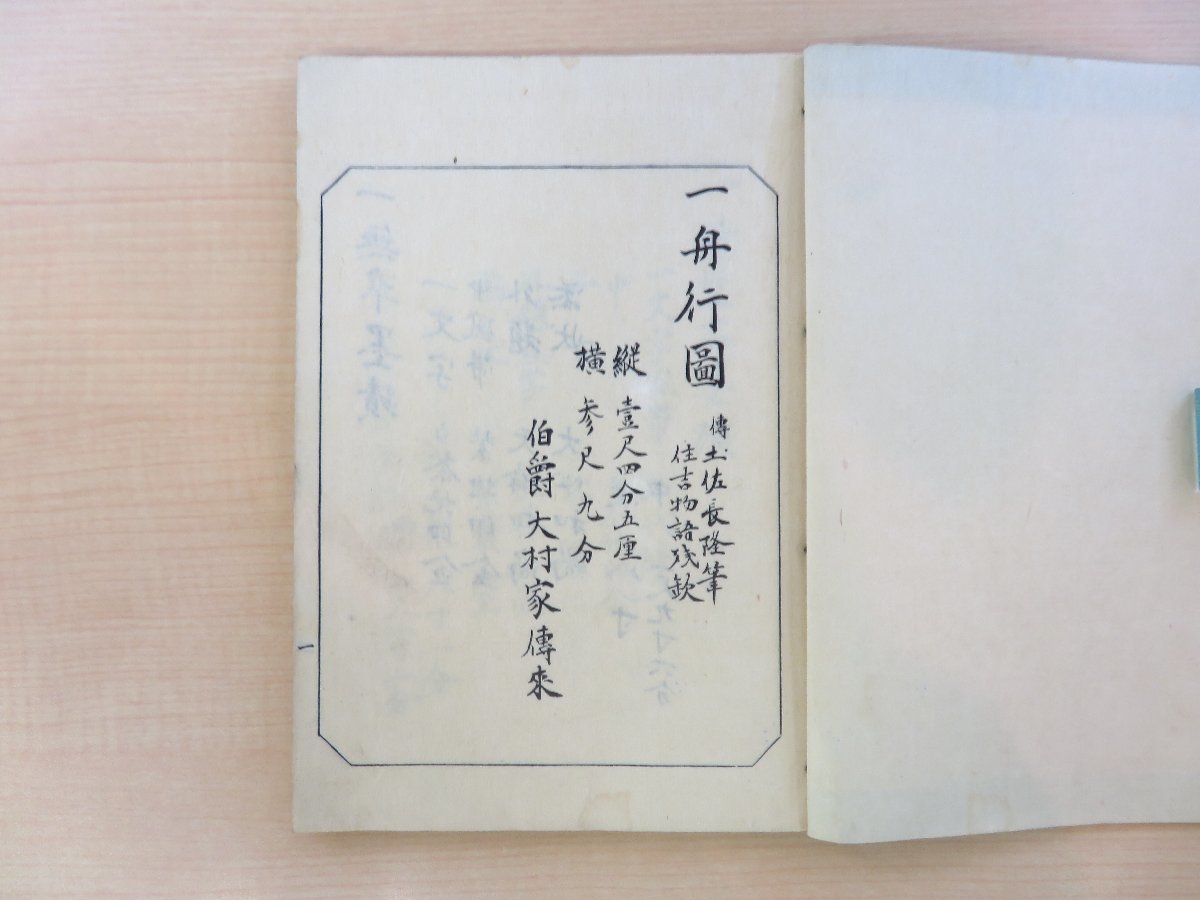 一舟行圖
傳土佐長隆筆
住吉物語残欽
縦壹尺四分五厘
横参尺九分
伯爵大村家傳來
一